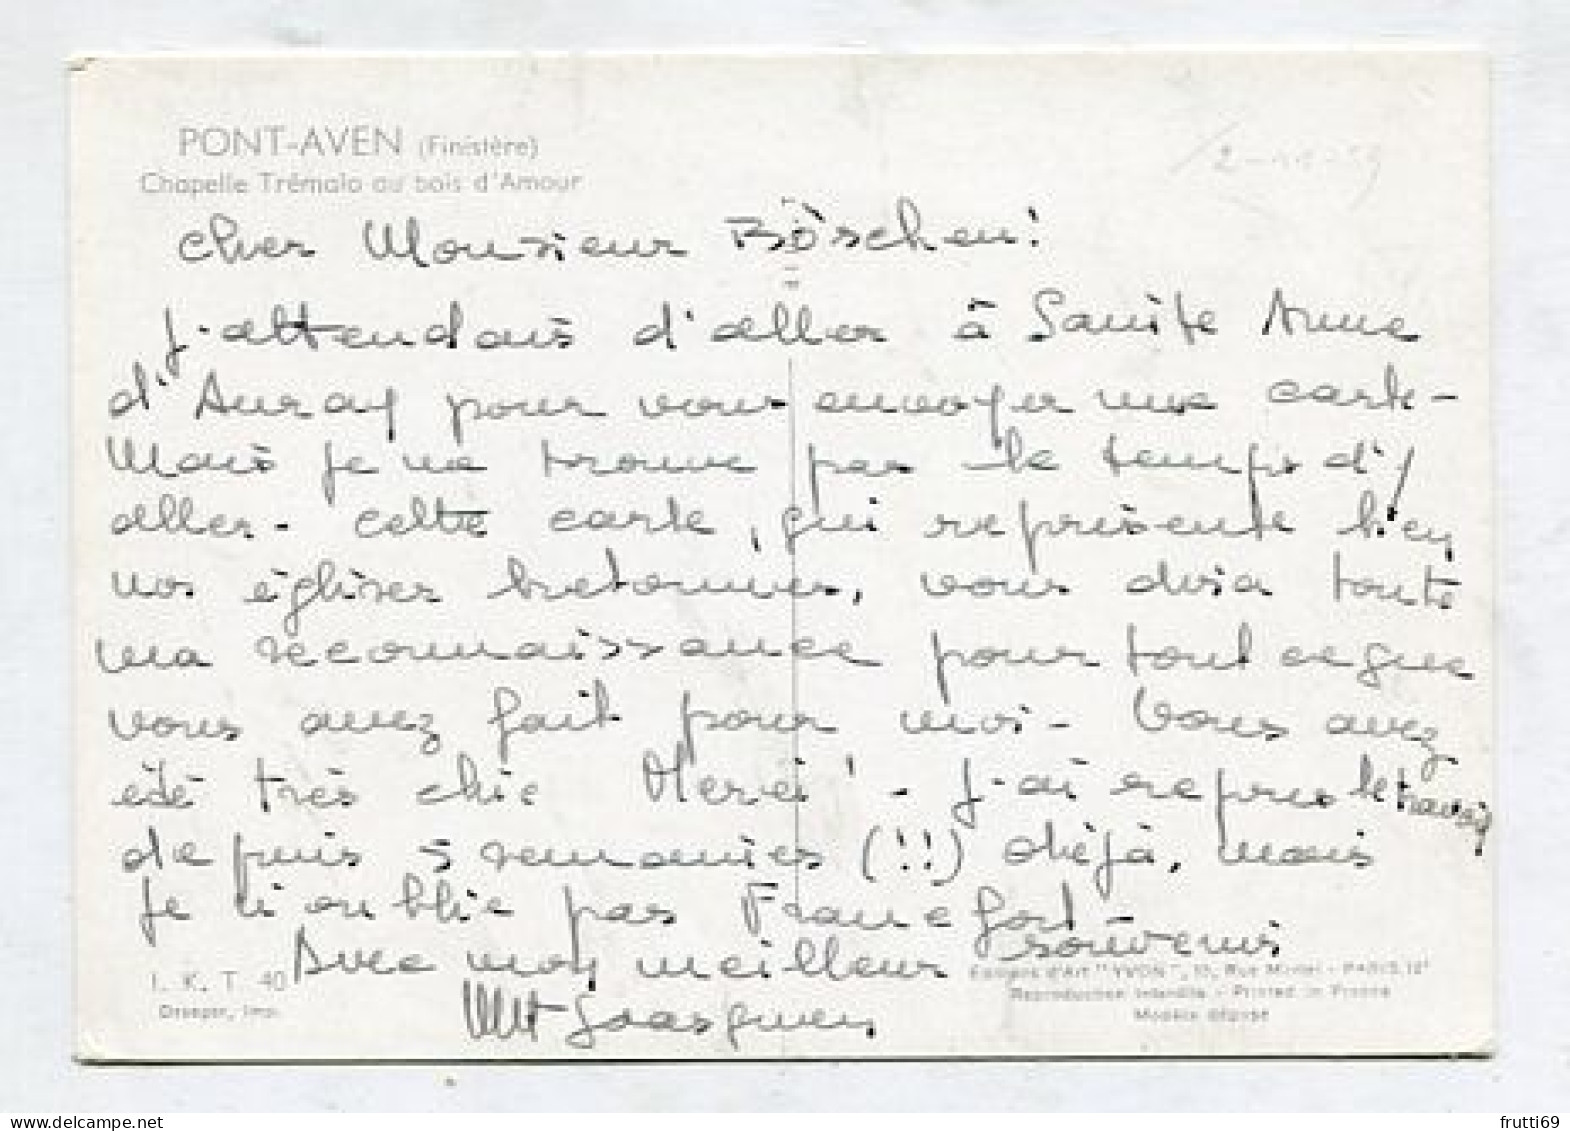 PONT-AVEN (Finistère)
Chapelle Trémalo au bois d'Amour
12-11-59
Cher Monsieur Böschen!
J'attendais d'aller à Sainte Anne
d'Auray pour vous envoyer une carte-
Mais je ne trouve pas le temps d'y
aller- cette carte, qui représente bien
nos églises bretonnes, vous dira toute
ma reconnaissance pour tout ce que
vous avez fait pour moi- Vous avez
été très chic Merci! - J'ai repris le travail
depuis 5 semaines (!!) déjà, mais
je n'oublie pas Francfort-
Avec mon meilleur souvenir
I. K. T. 40
Draeger, Imp.
Editions d'Art "YVON", 15, Rue Martel - PARIS 12e
Reproduction Interdite - Printed in France
Modèle déposé
frutti69